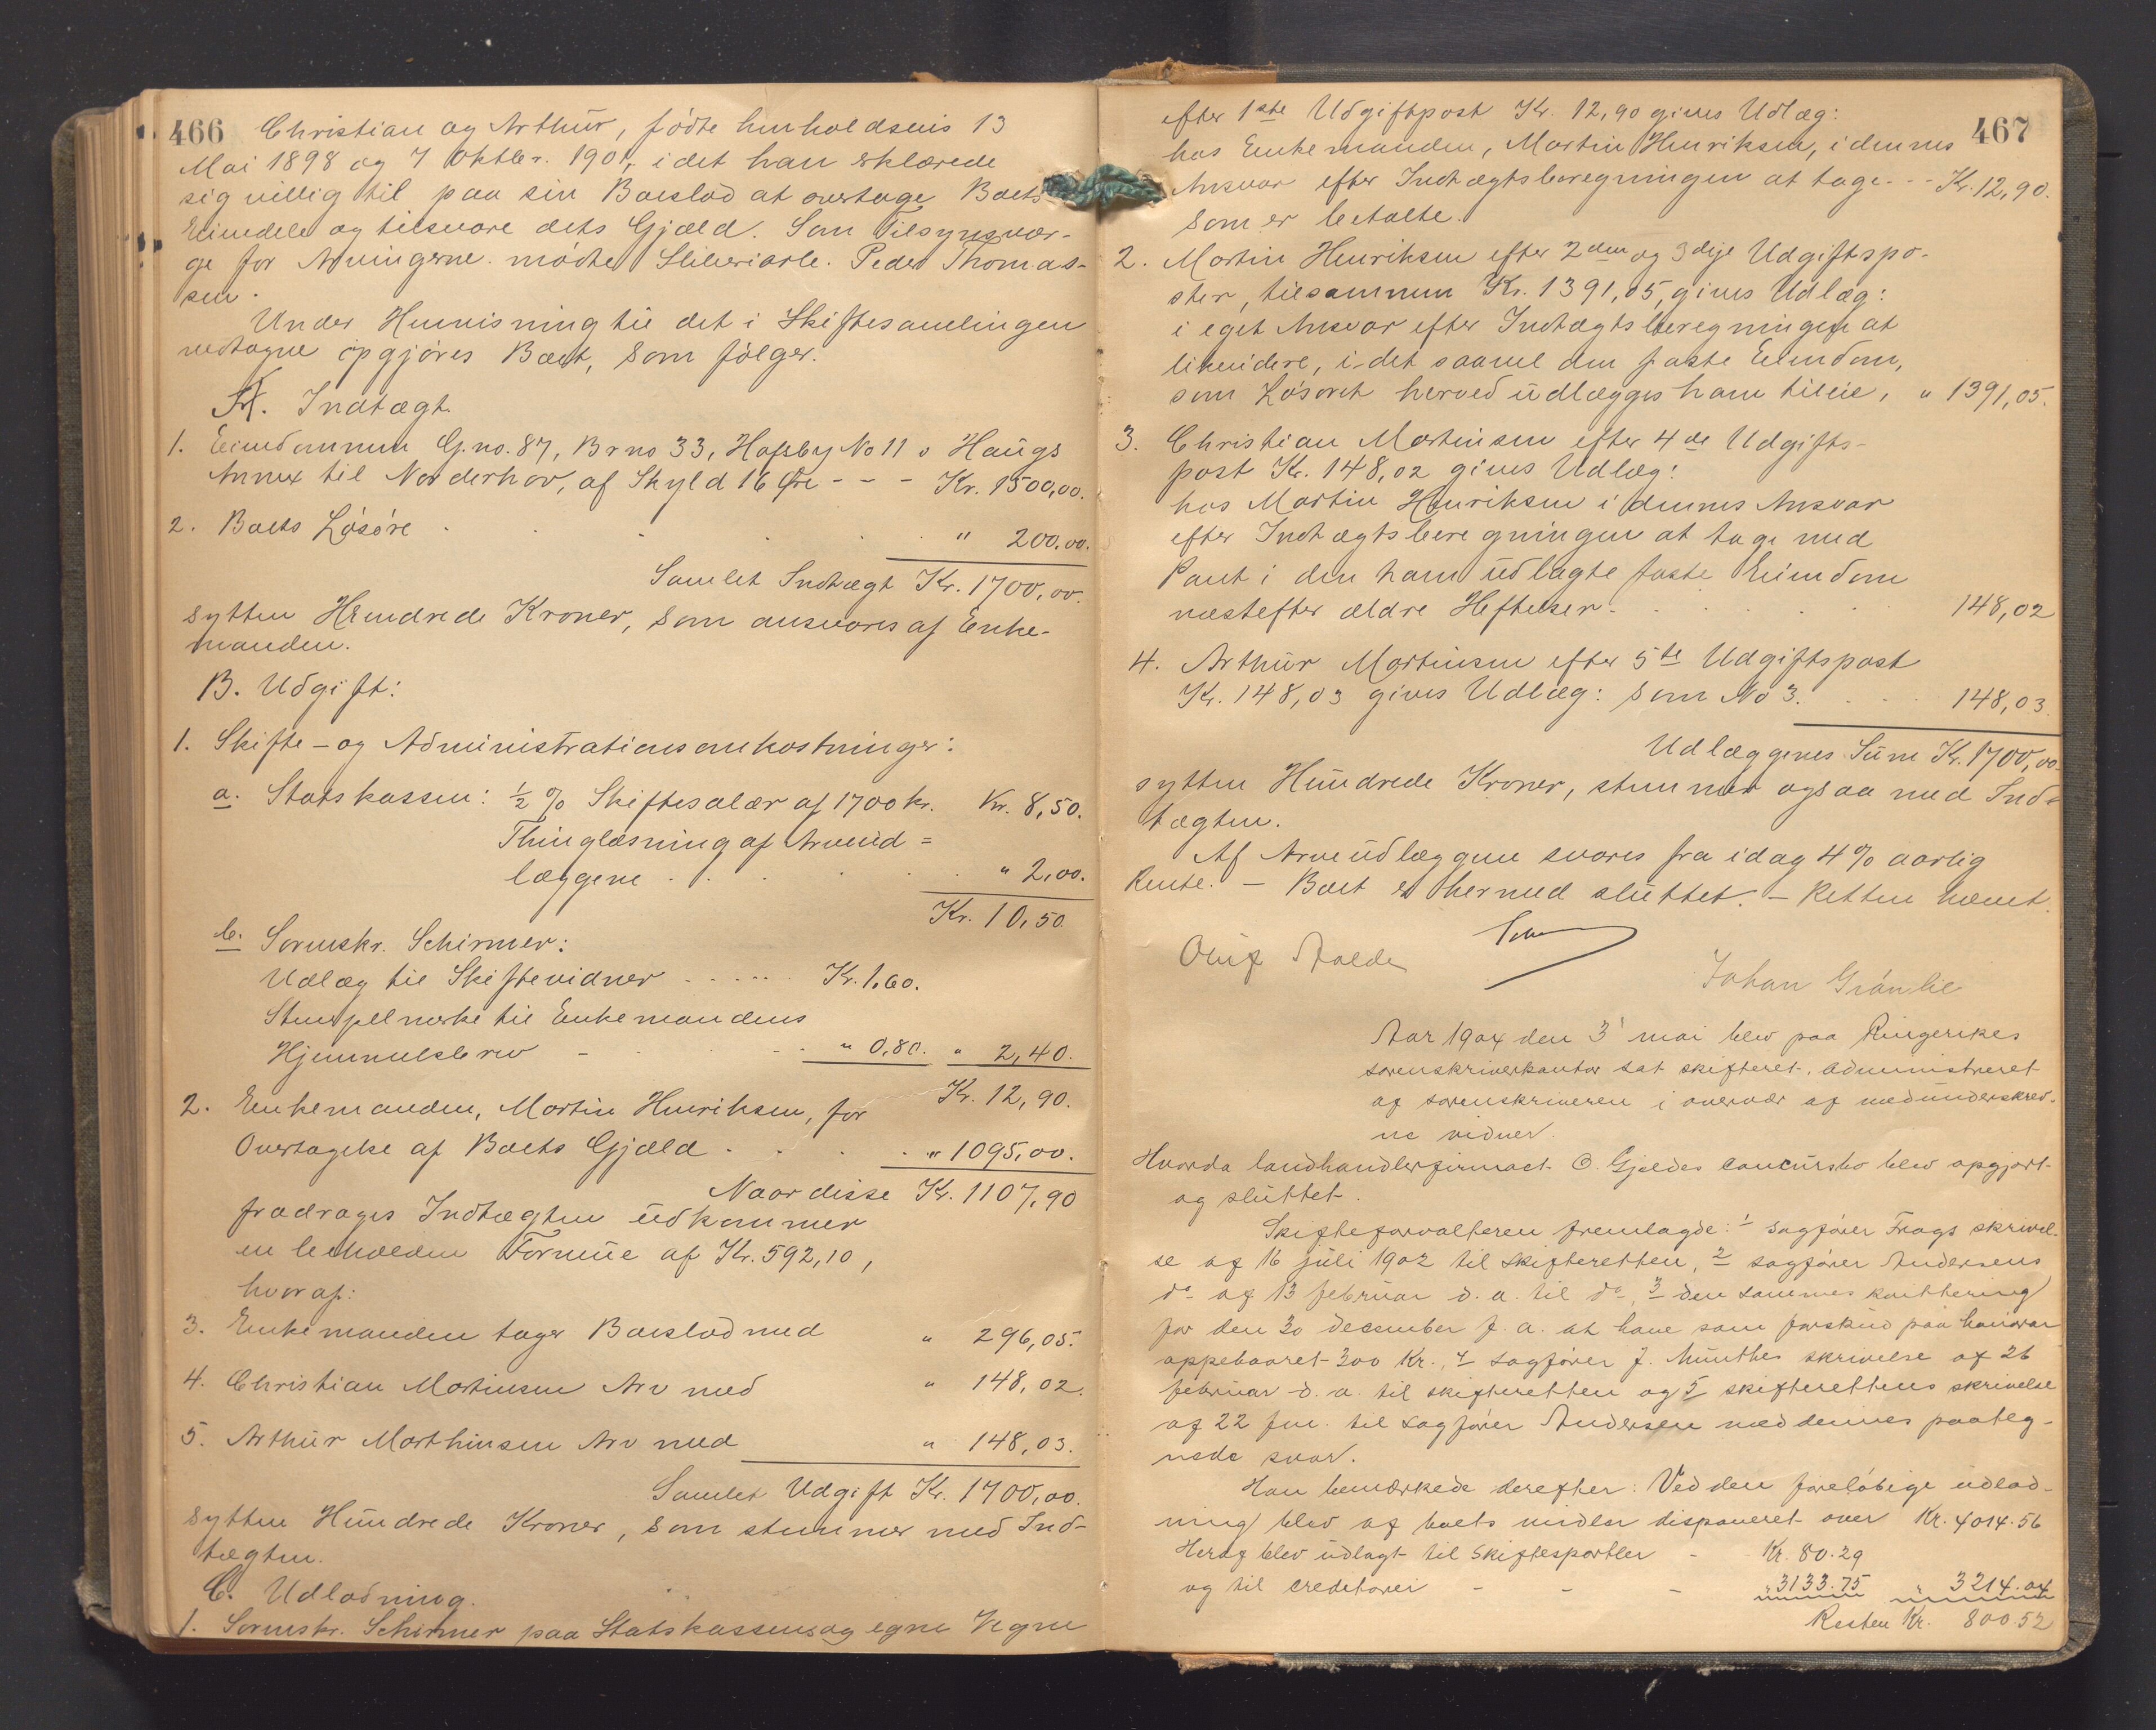 466
Christian og Arthur, fødte henholdsvis 13
Mai 1898 og 7 Oktbr. 1901, i det han erklærede
sig villig til paa sin Boeslod at overtage Boets
Eiendele og tilsvare dets Gjæld. Som Tilsynsvær-
ge for Arvingerne mødte Sliberiarb. Peder Thomas-
sen.
Under Henvisning til det i Skiftesamlingen
vedtagne opgjøres Boet, som følger.
A. Indtægt
1. Eiendommen G.no. 87, Br no 33, Hofsby No 11 i Haugs
Annex til Norderhov, af Skyld 16 Øre - - - Kr. 1500,00.
2. Boets Løsøre " 200,00.
Samlet Indtægt Kr. 1700,00.
sytten Hundrede Kroner, som ansvares af Enke-
manden.
B. Udgift:
1. Skifte- og Administrationsomkostninger:
a. Statskassen: ½ % Skiftesalær af 1700 kr. Kr. 8,50.
Thinglæsning af Arveud=
læggene " 2,00.
Kr. 10,50
b. Sorenskr. Schirmer:
Udlæg til Skiftevidner Kr. 1.60.
Stempelmærke til Enkemandens
Hjemmelsbrev " 0,80. " 2,40.
Kr. 12,90.
2. Enkemanden, Martin Henriksen, for
Overtagelse af Boets Gjæld " 1095,00.
Naar disse Kr. 1107,90
fradrages Indtægten udkommer
en beholden Formue af Kr. 592,10,
hvoraf:
3. Enkemanden tager Boeslod med " 296,05.
4. Christian Martinsen Arv med " 148,02.
5. Arthur Marthinsen Arv med " 148,03.
Samlet Udgift Kr. 1700,00.
sytten Hundrede Kroner, som stemmer med Ind-
tægten.
C. Udlodning.
1. Sorenskr. Schirmer paa Statskassens og egne Vegne
467
efter 1ste Udgiftpost Kr. 12,90 gives Udlæg:
hos Enkemanden, Martin Henriksen, i dennes
Ansvar efter Indtægtsberegningen at tage - - Kr. 12,90.
som er betalte.
2. Martin Henriksen efter 2den og 3dje Udgiftspo-
ster, tilsammen Kr. 1391,05, gives Udlæg:
i eget Ansvar efter Indtægtsberegningen at
likvidere, i det saavel den faste Eiendom,
som Løsøret herved udlægges ham til eie, " 1391,05.
3. Christian Martinsen efter 4de Udgifts-
post Kr. 148,02 gives Udlæg:
hos Martin Henriksen i dennes Ansvar
efter Indtægtsberegningen at tage med
Pant i den ham udlagte faste Eiendom
næstefter ældre Heftelser. 148,02
4. Arthur Martinsen efter 5te Udgiftspost
Kr. 148,03 gives Udlæg: som No 3. 148,03
Udlæggenes Sum Kr. 1700,00
sytten Hundrede Kroner, stemmer ogsaa med Ind-
tægten.
Af Arveudlæggene svares fra idag 4% aarlig
Rente. - Boet er hermed sluttet. - Retten hævet.
Oluf
Johan
Aar 1904 den 3' mai blev paa Ringerikes
sorenskriverkontor sat skifteret, administreret
af sorenskriveren i overvær af medunderskrev-
ne vidner.
Hvorda landhandlerfirmaet O. Gjeldes concursbo blev opgjort
og sluttet.
Skifteforvalteren fremlagde: 1 sagfører Frogs skrivel-
se af 16 juli 1902 til skifteretten, 2 sagfører Andersens
do af 13 februar d. a. til do, 3 den sammes kvittering
for den 30 december f. a. at have som forskud paa honorar
oppebaaret 300 Kr., 4 sagfører J. Munthes skrivelse af 26
februar d. a. til skifteretten og 5 skifterettens skrivelse
af 22 fm. til sagfører Andersen med dennes paateg-
nede svar.
Han bemærkede derefter: Ved den foreløbige udlod-
ning blev af boets midler disponeret over Kr. 4014.56
Heraf blev udlagt til skiftesportler - Kr. 80.29
og til creditorer - - - " 3133.75 " 3214.04
Resten Kr. 800.52